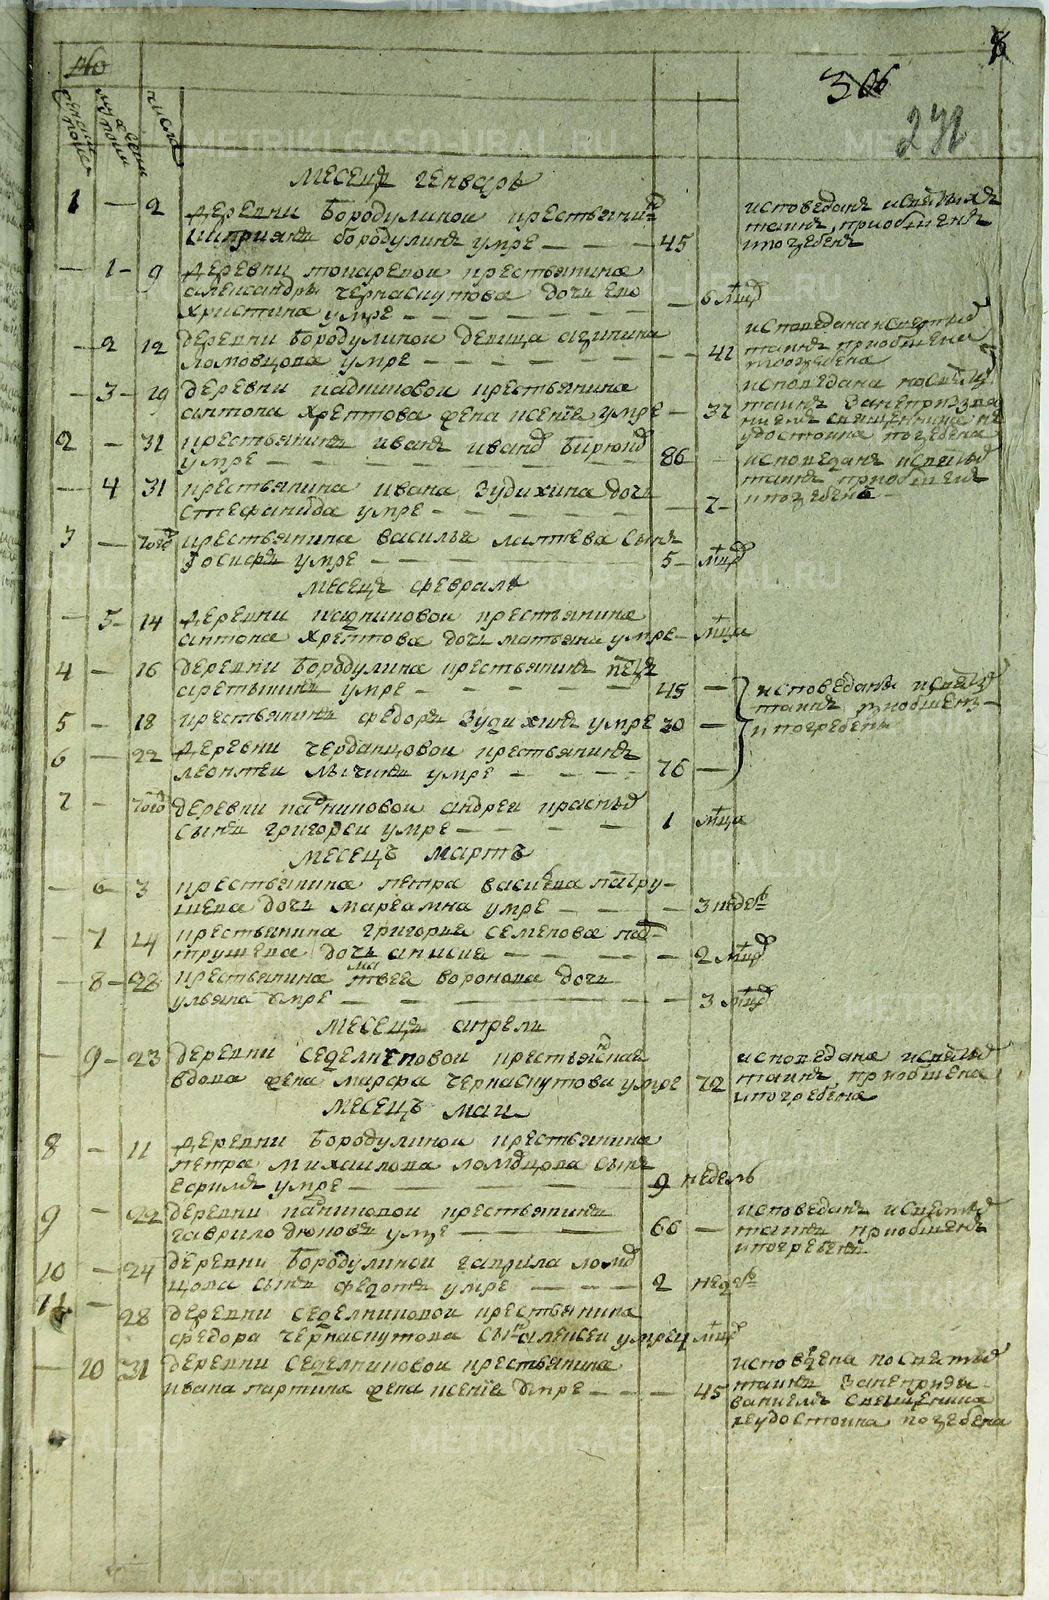 8
366
272
числа
месецъ генварь
1 — 2 деревни Бородулинои крестьянинъ
киприянъ бородулинъ умре — — — 45
исповеданъ исвятыхъ
таинъ, приобщенъ
ипогребенъ
— 1 — 9 деревни токаревои крестьянина
александры черноскутова дочь ево
христина умре — — — — — — 6 мцъ
— 2 12 деревни Бородулинои девица акилина
ломовцова умре — — — — — — 41
исповедана исвятыхъ
таинъ приобщена
ипогребена
— 3 — 29 деревни кадниковои крестьянина
антона хрептова жена ксения умре — 37
исповедана носвятых
таинъ занепризва
ниемъ священника не
удостоина погребена
2 — 31 крестьянинъ иванъ ивановъ Бирюковъ
умре — — — — — — 86
исповеданъ исвятых
таинъ приобщенъ
ипогребенъ —
— 4 31 крестьянина ивана Зудихина дочь
стефанида умре — — — — — 7 —
3 — того крестьянина василья лаптева сынъ
Иосифъ умре — — — — 5 — мцъ
месецъ февраль
— 5 — 14 деревни кадниковои крестьянина
антона хрептова дочь матрена умре — мца
4 — 16 деревни Бородулина крестьянинъ петръ
сиретинъ умре — — — — — 45 —
исповеданы исвятых
таинъ приобщены
ипогребены
5 — 18 крестьянинъ федоръ Зудихинъ умре 30 —
6 — 22 деревни черданцовои крестьянинъ
леонтеи мычинъ умре — — — — 76 —
7 — того деревни кадниковои андреи красных
сынъ григореи умре — — — — 1 мца
месецъ мартъ
— 6 — 3 крестьянина петра васильева патру—
шева дочь мариамна умре — — — — 3 недель
— 7 14 крестьянина григорья семенова пат—
трушева дочь анисия — — — — — 2 мцъ
— 8 — 28 крестьянина матвея воронова дочь
ульяна умре — — — — 3 мцъ
месецъ апрель
— 9 — 23 деревни седелниковои крестьянская
вдова жена марфа черноскутова умре 72
исповедана исвятых
таинъ, приобщена
ипогребена
месецъ маи
8 — 11 деревни Бородулинои крестьянина
петра михаилова ломовцова сынъ
ефримъ умре — — — — 9 недель
9 — 22 деревни кадниковои крестьянинъ
гаврило дюковъ умре — — — 66 —
исповеданъ исвятых
таинъ приобщенъ
ипогребенъ
10 — 24 деревни Бородулинои гаврила ломов
цова сынъ федотъ умре — — — 2 недель
11 — 28 деревни седелниковои крестьянина
федора черноскутова сынъ алексеи умре 4 мцъ
— 10 31 деревни седелниковои крестьянина
ивана партина жена ксения умре — — — 45
исповедена носвятых
таинъ занепризы—
ваниемъ священника
неудостоина погребена
METRIKI.GASO-URAL.RU